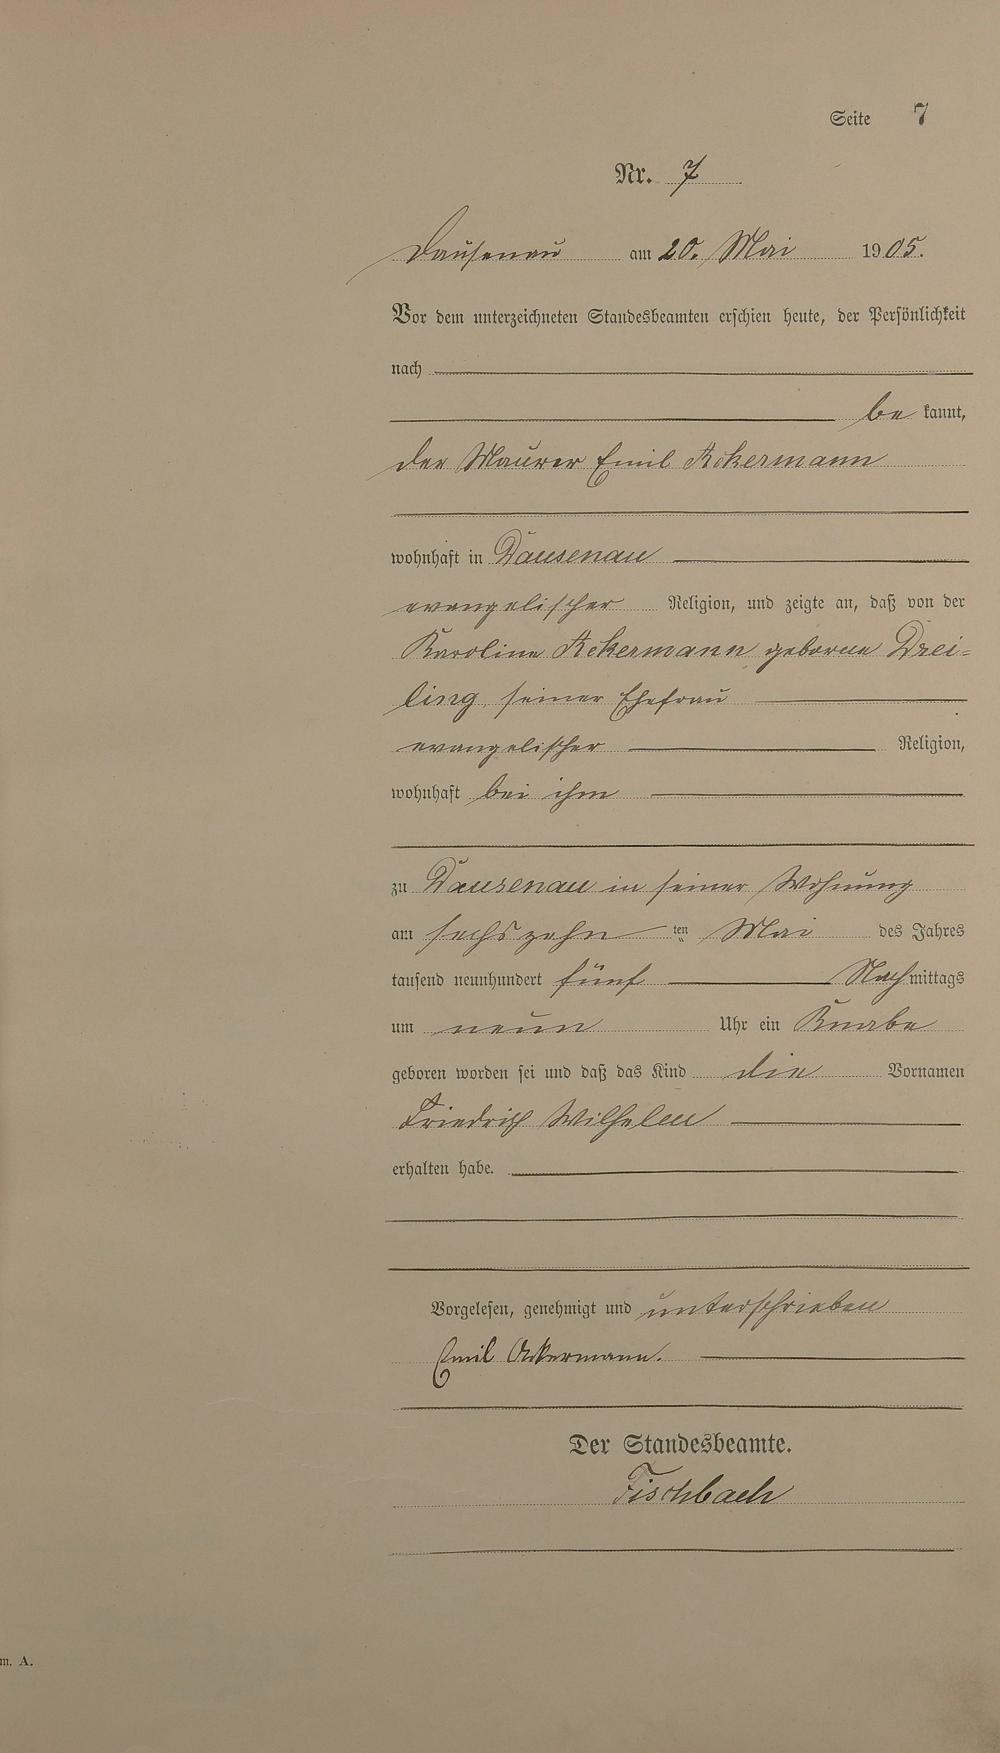 Seite 7
Nr. 7
Dausenau am 20. Mai 1905.
Vor dem unterzeichneten Standesbeamten erschien heute, der Persönlichkeit
nach
be kannt,
der Maurer Emil Ackermann
wohnhaft in Dausenau
evangelischer Religion, und zeigte an, daß von der
Karoline Ackermann geborne Drei=
ling, seiner Ehefrau
evangelischer Religion,
wohnhaft bei ihm
zu Dausenau in seiner Wohnung
am sechszehn ten Mai des Jahres
tausend neunhundert fünf Nachmittags
um neun Uhr ein Knabe
geboren worden sei und daß das Kind die Vornamen
Friedrich Wilhelm
erhalten habe.
Vorgelesen, genehmigt und unterschrieben
Emil Ackermann.
Der Standesbeamte.
Fischbach
m. A.